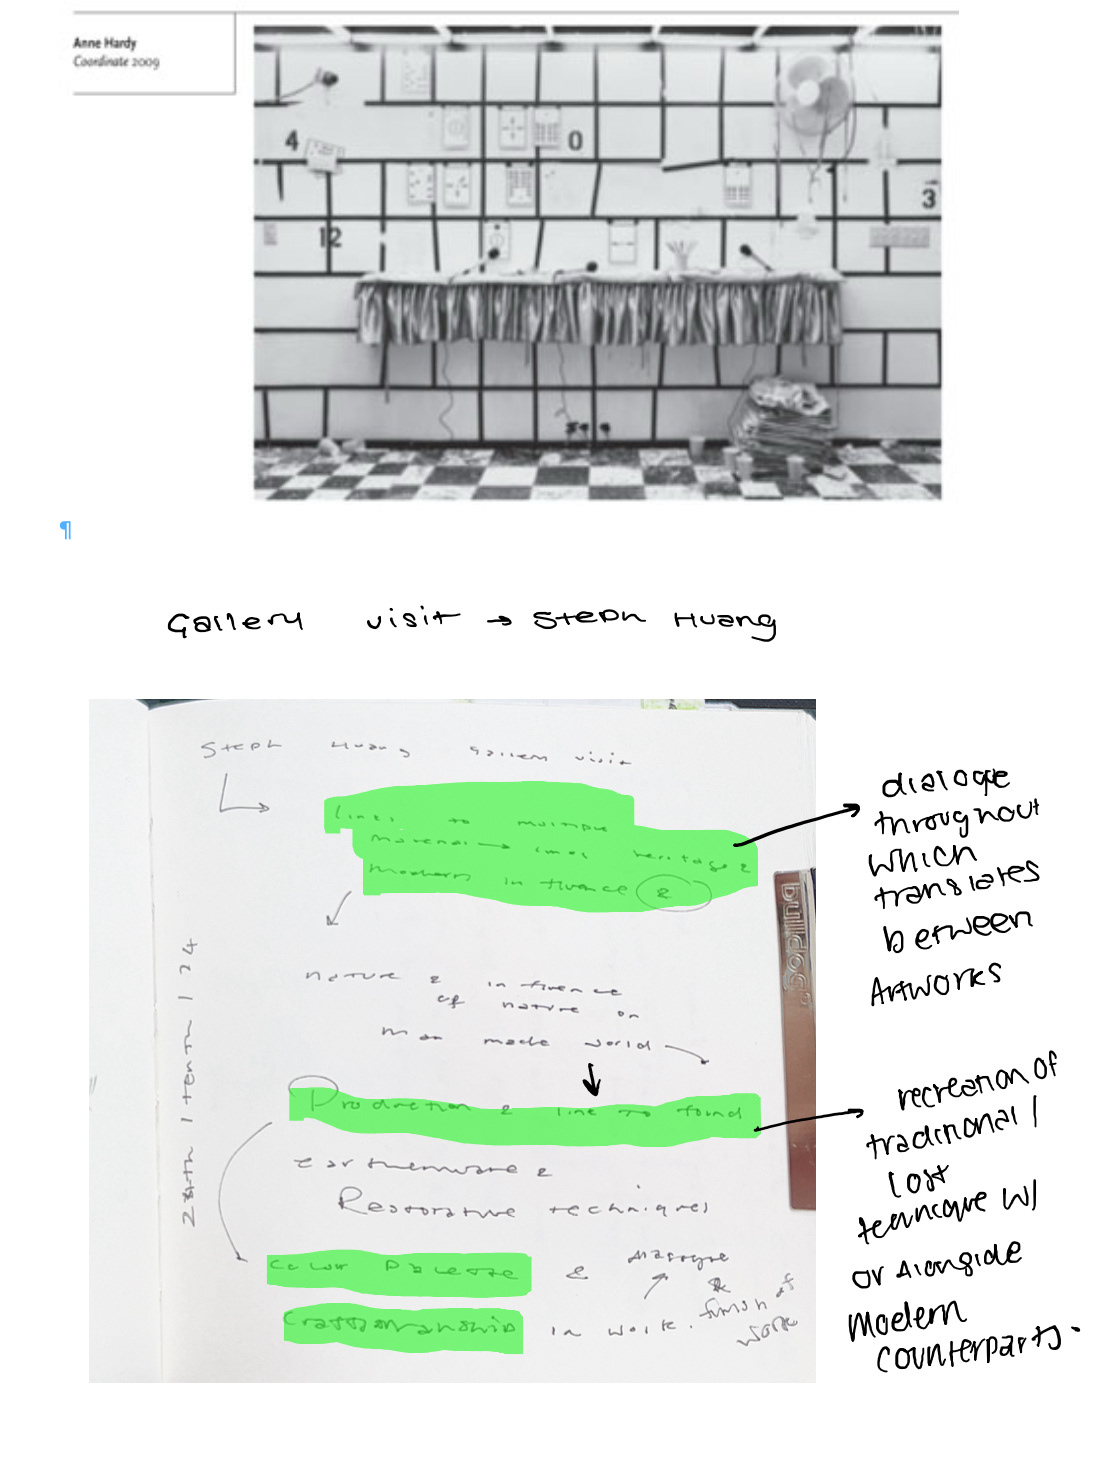 Anne Hardy
Coordinate 2009
4
0
3
12
¶
Gallery visit → Steph Huang
Steph Huang Gallery visit
Links to multiple
material → heritage &
modern influence &
dialoge
throughout
which
translates
between
Artworks
buildog
nature & influence
of nature on
man made world
Production & line to found
earthenware &
Restorative techniques
Color Palette &
Craftsmanship in work.
finish of
work
recreation of
traditional /
lost
technique w/
or alongside
modern
counterparts.